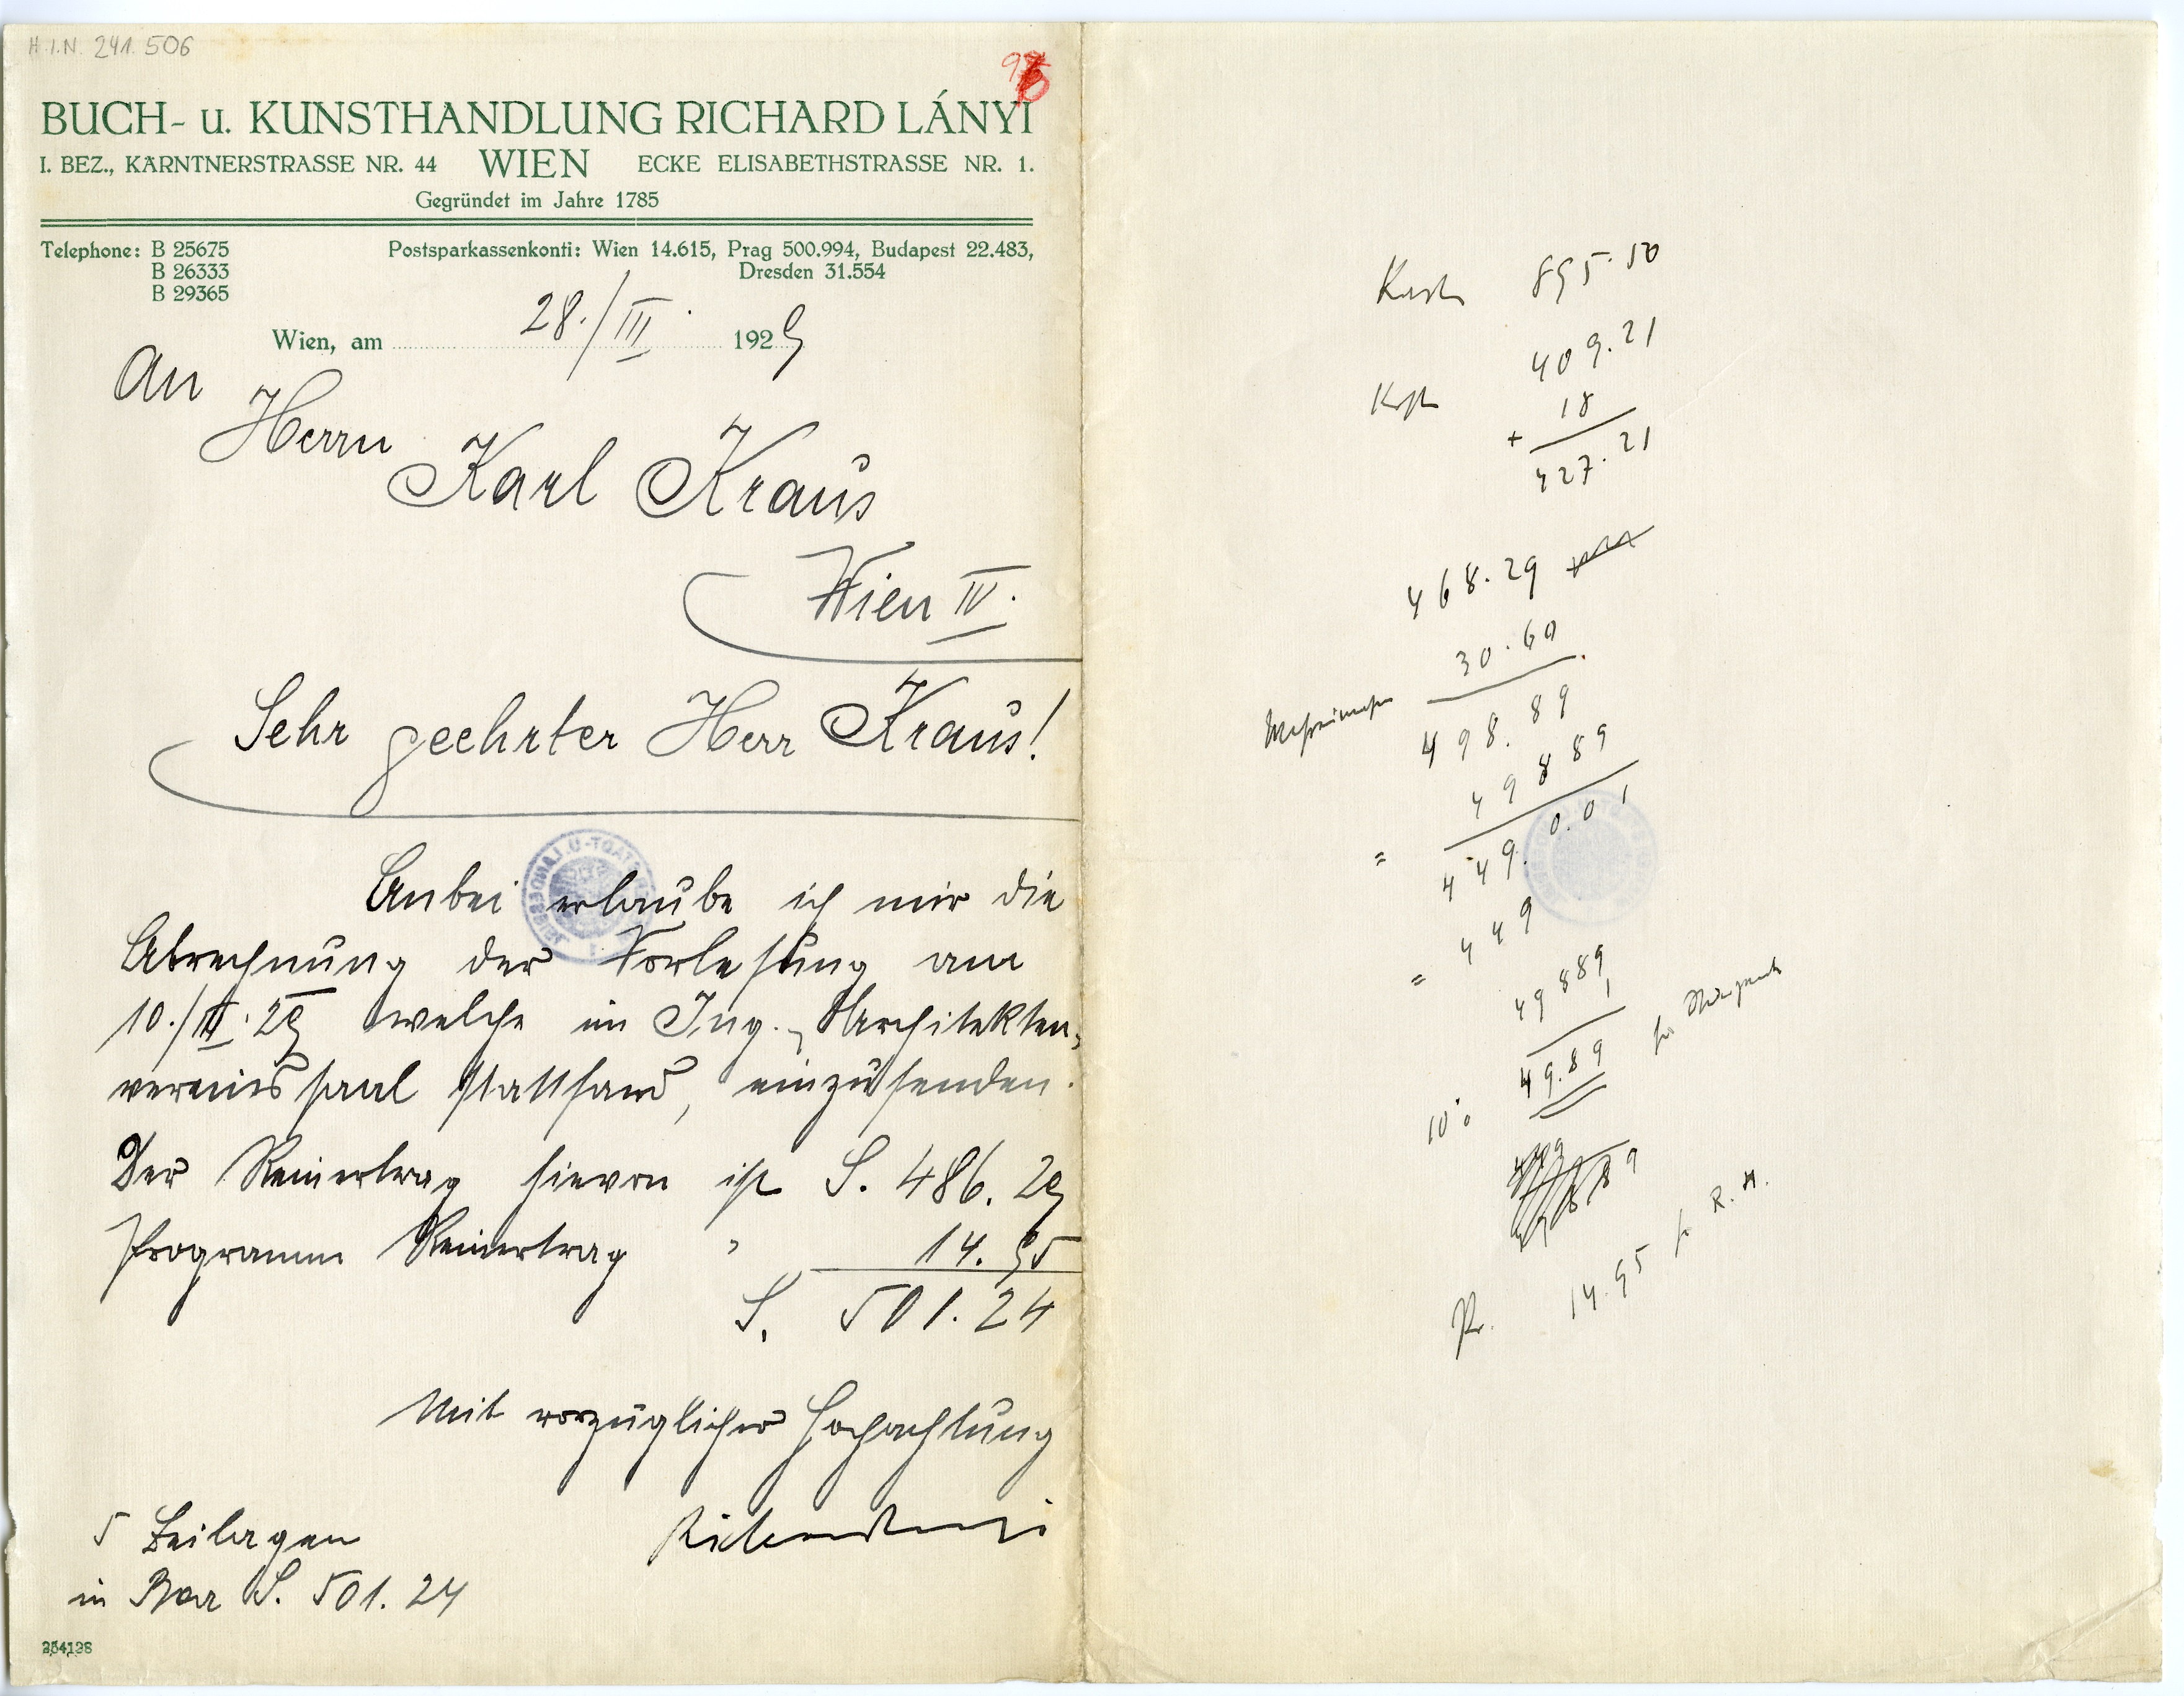 H.I.N. 241.506
BUCH- u. KUNSTHANDLUNG RICHARD LÁNYI
I. BEZ., KÄRNTNERSTRASSE NR. 44 WIEN ECKE ELISABETHSTRASSE NR. 1.
Gegründet im Jahre 1785
Telephone: B 25675
B 26333
B 29365
Postsparkassenkonti: Wien 14.615, Prag 500.994, Budapest 22.483,
Dresden 31.554
Wien, am 28./III. 1929
An
Herrn
Karl Kraus
Wien IV.
Sehr geehrter Herr Kraus!
Anbei erlaube ich mir die
Abrechnung der Vorlesung am
10./III.29 welche im Ing. Architekten-
vereinssaal stattfand, einzusenden.
Der Reinertrag hievon ist S. 486.29
Programm Reinertrag " 14.95
S. 501.24
Mit vorzüglicher Hochachtung
Richard Lányi
5 Beilagen
in Bar S. 501.24
254128
895.50
409.21
18
+
427.21
468.29
30.60
498.89
49889
= 449.0.01
= 449
49889
1
49.89 für
10%
Pr. 14.95 für R. H.